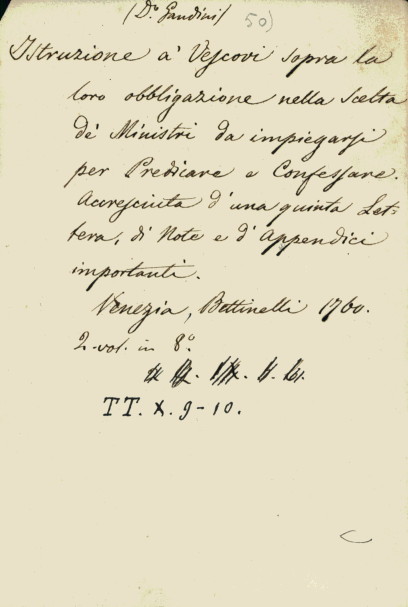 (Dº. Gandini) 50)
Istruzione a' Vescovi sopra la
loro obbligazione nella Scelta
de' Ministri da impiegarsi
per Predicare e Confessare.
Accresciuta d'una quinta Let-
tera, di Note e d'Appendici
importanti.
Venezia, Bettinelli 1760.
2. vol. in 8º.
TT. X. 9-10.